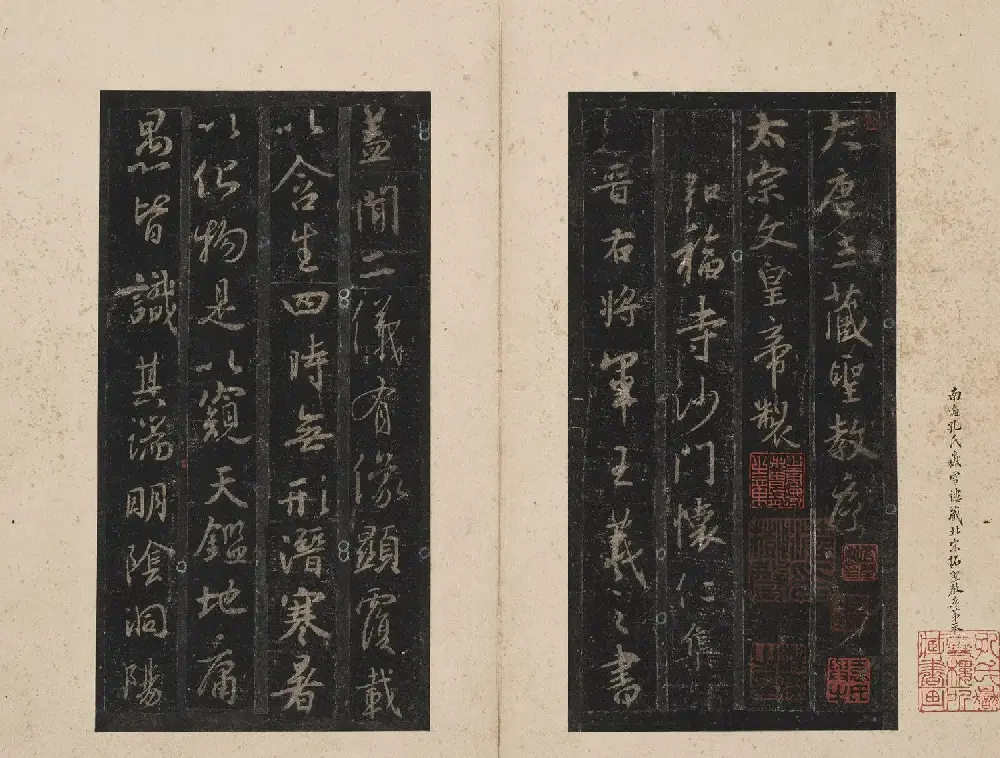 南海孔氏嶽雪樓藏北宋拓聖教序
孔氏嶽雪樓所藏書畫
大唐三藏聖教序
太宗文皇帝製
弘福寺沙門懷仁集
晉右將軍王羲之書
蓋聞二儀有像顯覆載
以含生四時無形潛寒暑
以化物是以窺天鑑地庸
愚皆識其端明陰洞陽